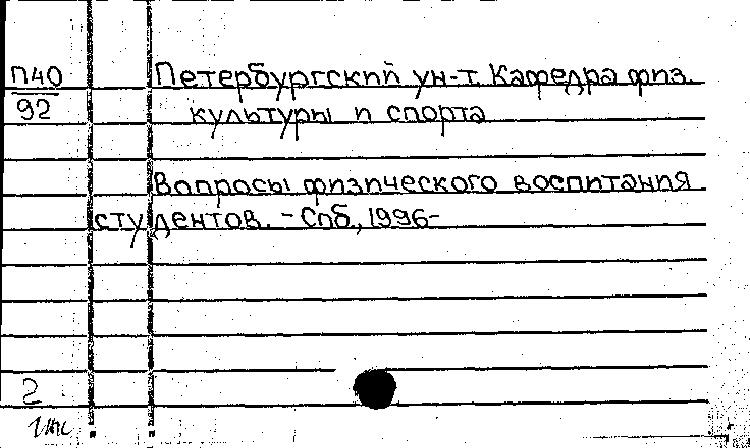 П40
92
Петербургский ун-т. Кафедра физ.
культуры и спорта
Вопросы физического воспитания
студентов. - Спб., 1996-
2